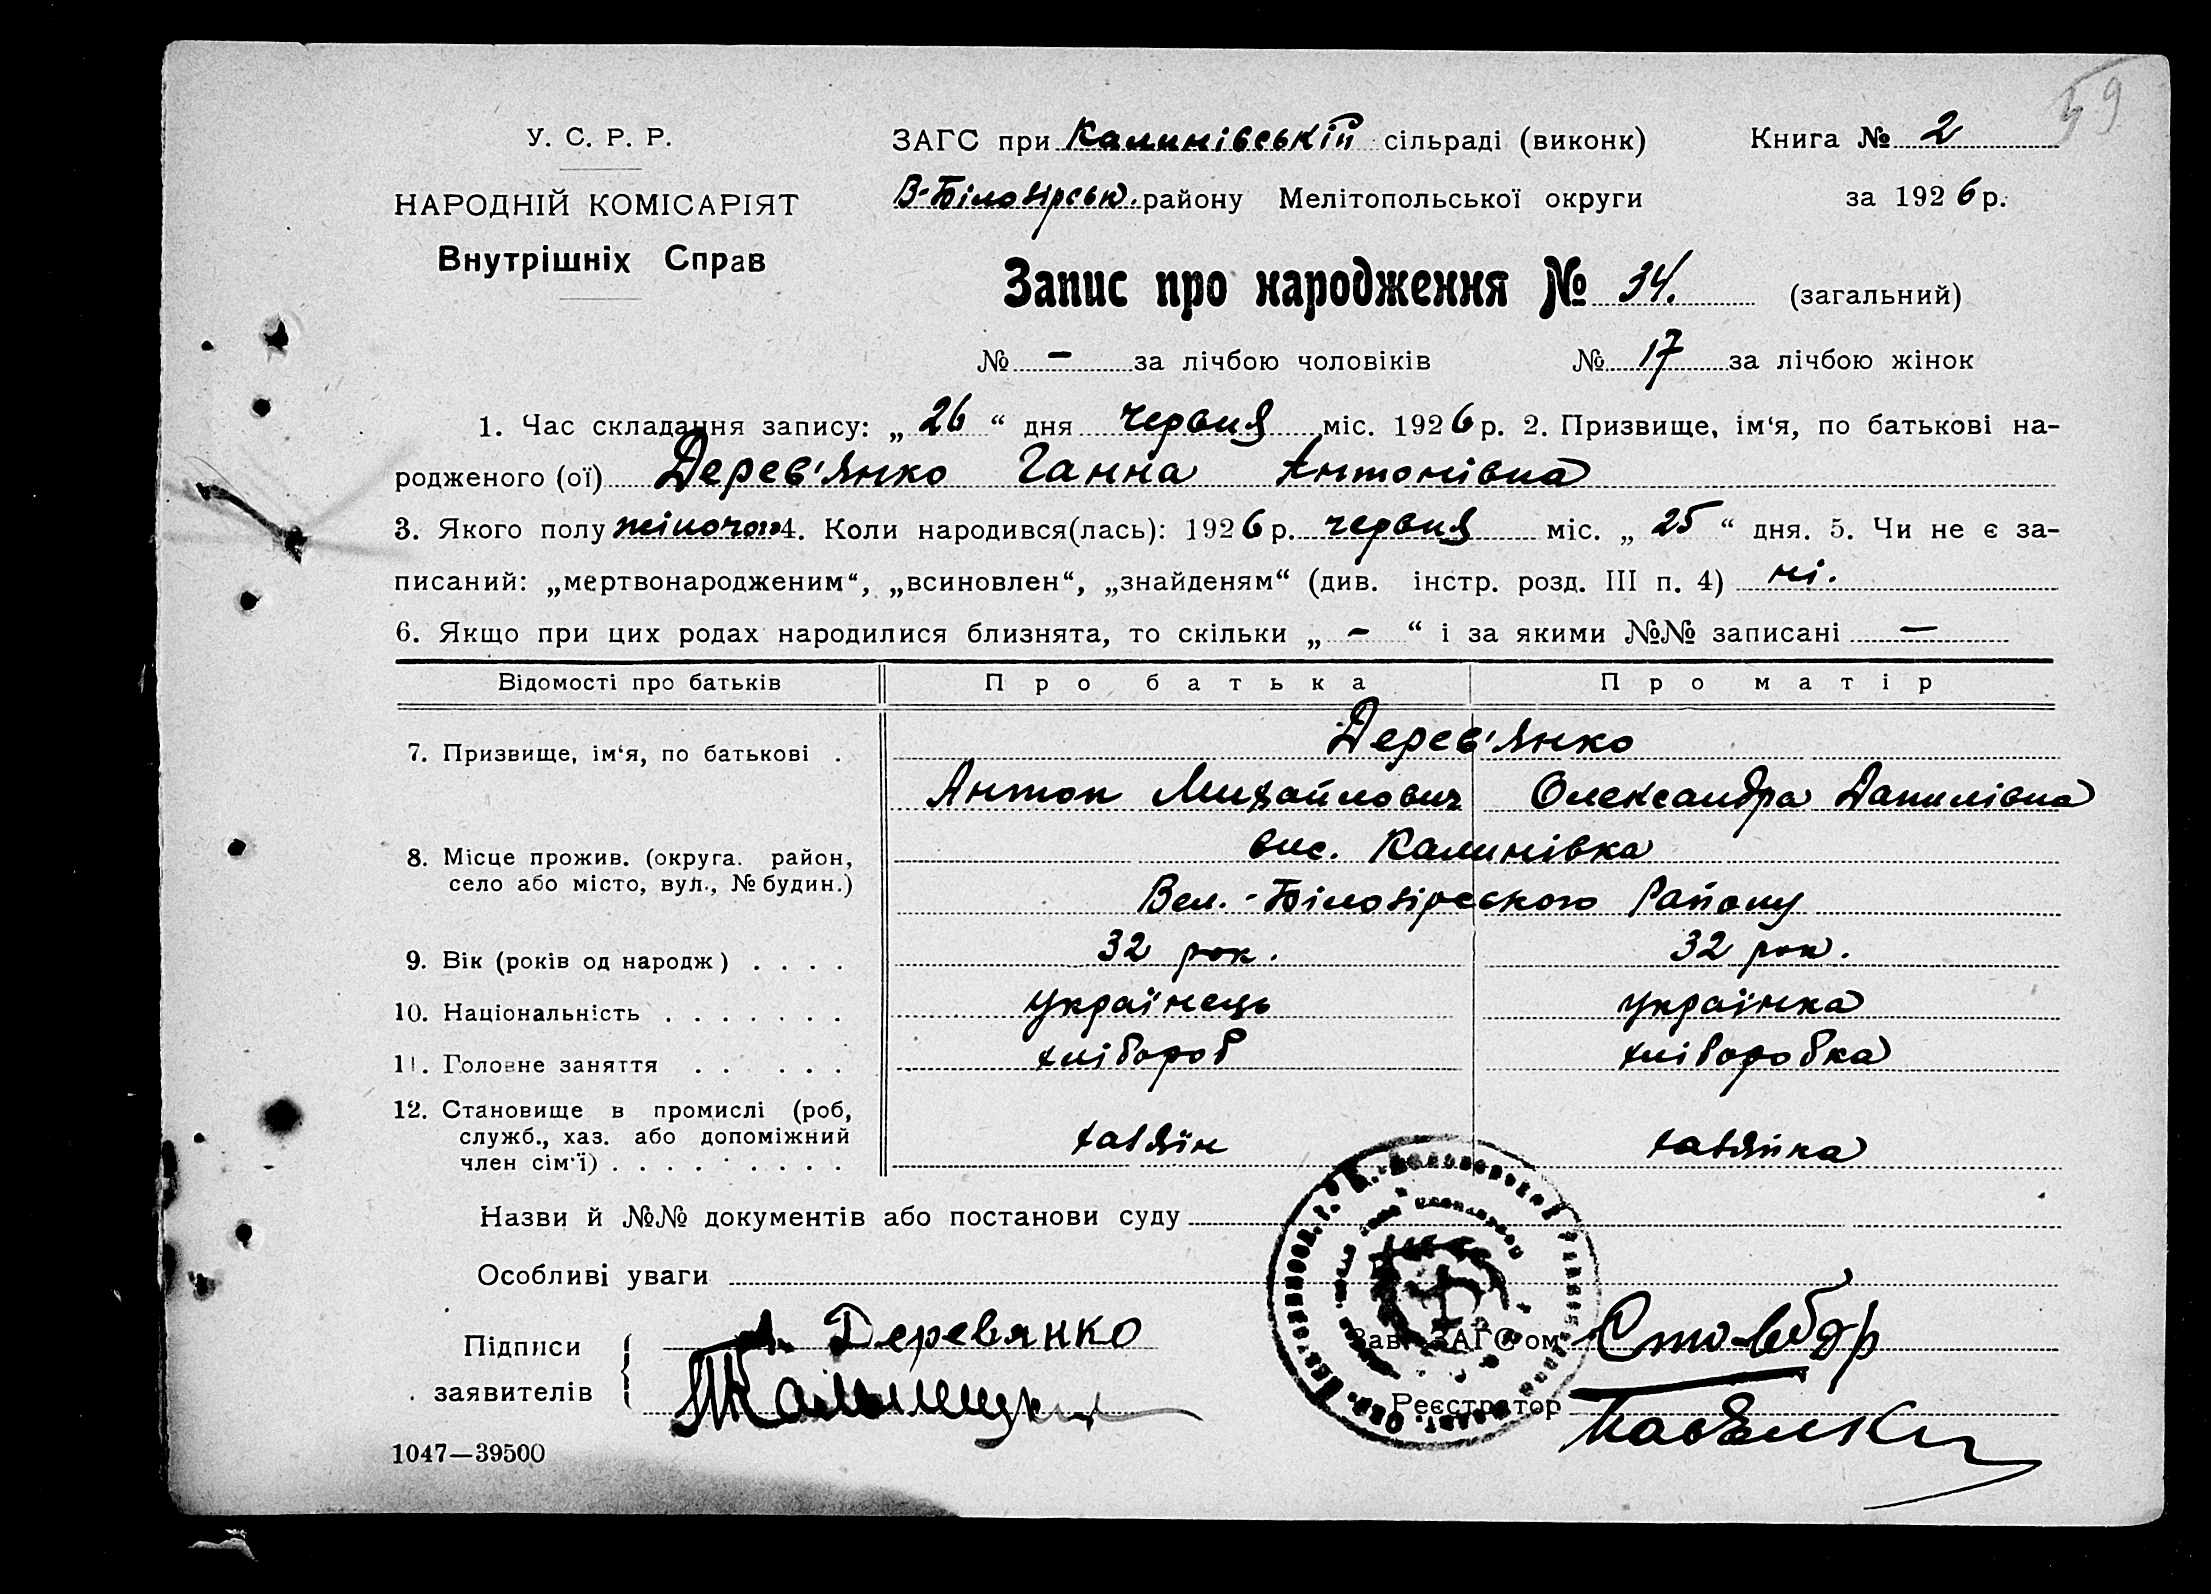 59
У. С. Р. Р.
НАРОДНІЙ КОМІСАРІЯТ
Внутрішніх Справ
ЗАГС при Калинівській сільраді (виконк)
Книга № 2
В-Білозірськ. району Мелітопольської округи
за 1926 р.
Запис про народження № 34. (загальний)
№ — за лічбою чоловіків № 17 за лічбою жінок
1. Час складання запису: „ 26 “ дня червня міс. 1926 р. 2. Призвище, ім‘я, по батькові на-
родженого (ої) Дерев'янко Ганна Антонівна
3. Якого полу жіночого 4. Коли народився(лась): 1926 р. червня міс. „ 25 “ дня. 5. Чи не є за-
писаний: „мертвонародженим“, „всиновлен“, „знайденям“ (див. інстр. розд. III п. 4) ні.
6. Якщо при цих родах народилися близнята, то скільки „ - “ і за якими №№ записані —
Відомості про батьків Про батька Про матір
Дерев'янко
7. Призвище, ім‘я, по батькові .
Антон Михайлович Олександра Данилівна
вис. Калинівка
8. Місце прожив. (округа. район,
село або місто, вул., № будин.)
Вел.-Білозірського Району
9. Вік (років од народж) . . . . 32 рок. 32 рок.
10. Національність . . . . . . . українець українка
11. Головне заняття . . . . . хлібороб хліборобка
12. Становище в промислі (роб,
служб., хаз. або допоміжний
член сім‘ї) . . . . . . . . . хазяїн хазяйка
Назви й №№ документів або постанови суду
Особливі уваги
Підписи
заявителів
А. Деревянко
Зав. ЗАГС‘ом
Реєстратор
1047—39500